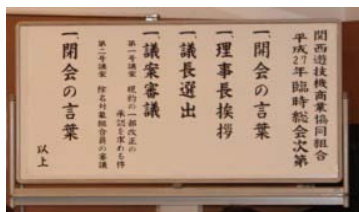 関西遊技機商業協同組合
平成27年臨時総会次第
一、開会の言葉
一、理事長挨拶
一、議長選出
一、議案審議
第一号議案 規約の一部改正の
承認を求める件
第二号議案 除名対象組合員の審議
一、閉会の言葉
以上